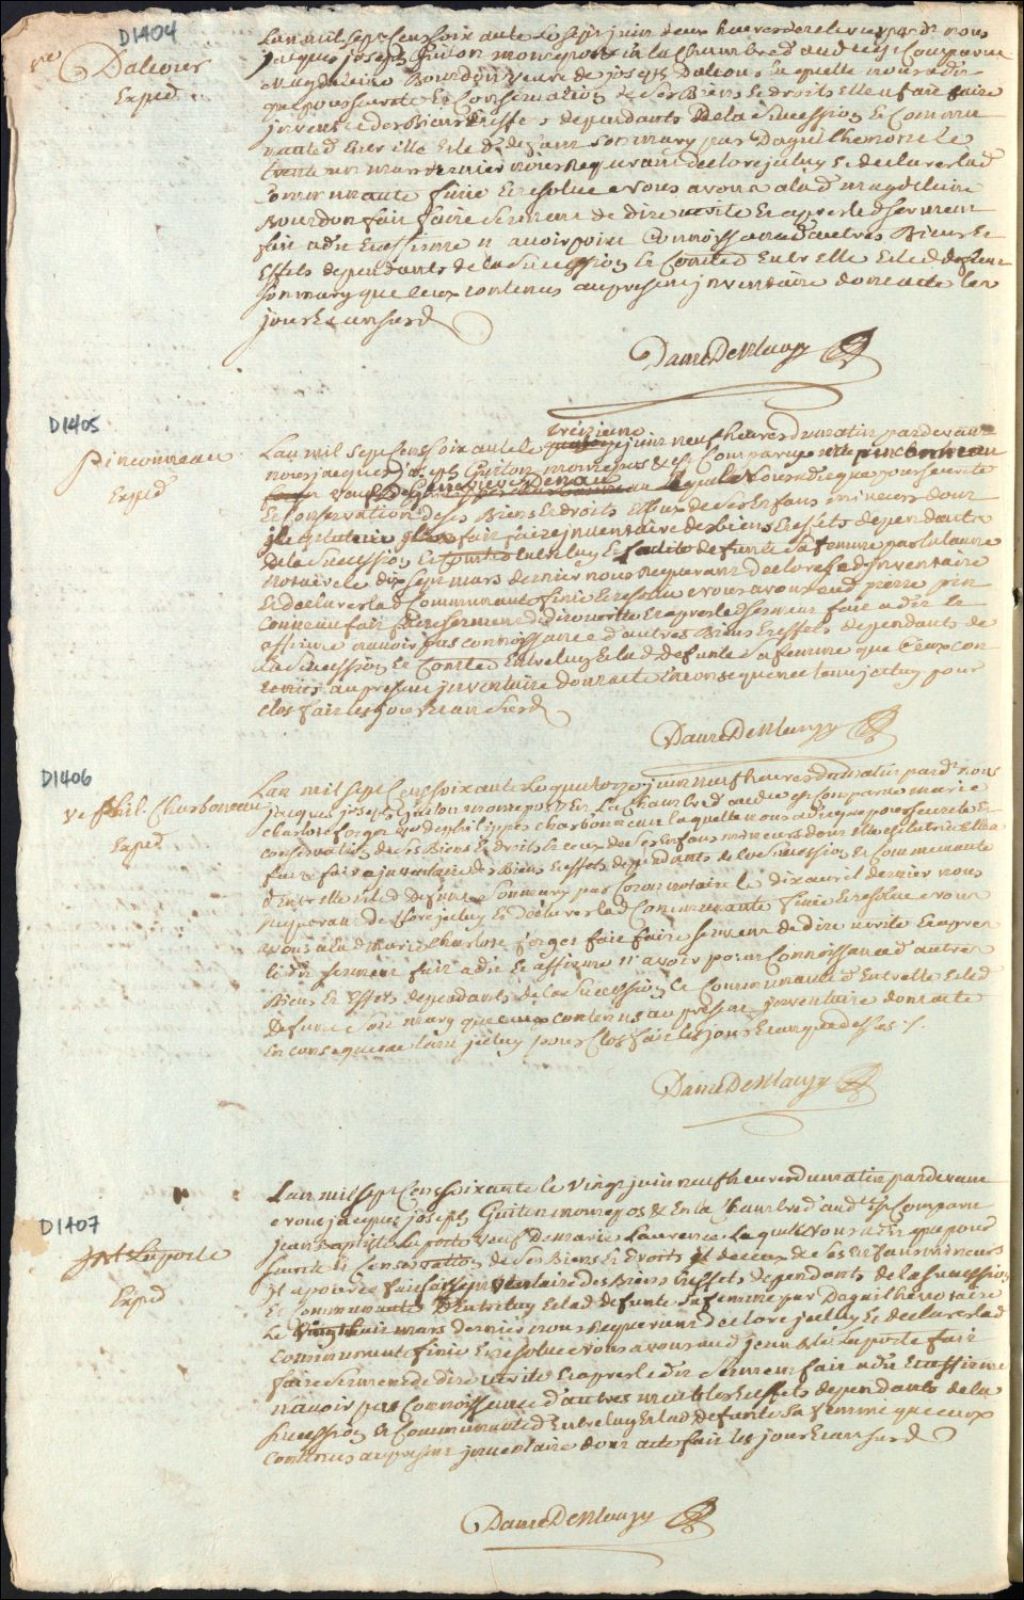 D1404
ve Dalcour
Exped
Lan mil sept cens soix ante le sept juin deux heures de relevee pard. nous
jacques joseph Guiton monrepos & en la Chambre d'aud. est Comparue
Magdeleine Bourdon veuve de joseph Dalcour laquelle nous a dit
que pour surete Et Conservation de ses Biens Et droits elle a fait faire
jnventaire des Biens & effets dependants De la Succession Et Commu
nauté d'Entre elle et le d. defunt son mary par Daguilhe notaire le
trente un mars dernier nous Requerant de clore jceluy & declarer lad
Communauté finie Et resolue nous avons a lad. magdelaine
Bourdon fait faire serment de dire verité Et apres led. serment
fait a dit Et affirmé n'avoir point Connoissance d'autres Biens Et
Effets dependants de la Succession Et Com.te d'Entre elle Et led. defunt
son mary que Ceux contenus au present jnventaire dont acte les
jour & an susd.
DaureDeBlanzy
D1405
Pinconneau
Exped
Lan mil sept cens soix ante le treizieme juin neuf heures du matin pardevant
nous jacques joseph Guiton monrepos & est Comparu pinconneau
veuf De Genevieve Denau Lequel Nous a dit que pour sureté
Et Conservation de ses Biens Et droits Et ceux de ses Enfans mineurs dont
jl est tuteur jl a fait faire jnventaire des biens Et effets dependants
de la Succession Et Com.té Entre luy Et ladite defunte sa femme par
notaire le dix sept mars dernier nous Requerant de clore led. jnventaire
Et declarer lad. Communauté finie Et resolue nous avons aud. pierre pin
conneau fait faire serment de dire verité Et apres led. serment fait a dit Et
affirmé n'avoir pas connoissance d'autres Biens Et effets dependants de
La Succession Et Com.té d'Entre luy Et lad. defunte sa femme que Ceux con
tenus au present jnventaire dont acte En consequence tenu jceluy pour
clos fait les jour & an susd.
DaureDeBlanzy
D1406
ve phil. Charboneau
Exped
Lan mil sept Cens soix ante Le quatorze juin neuf heures du matin pard. nous
jacques joseph Guiton monrepos & En La Chambre d'aud.ce est Comparue marie
charlotte forget ve de philippes charbonneau laquelle nous a dit que pour sureté Et
conservation de ses Biens Et droits Et ceux de ses Enfans mineurs dont elle est tutrice Elle a
fait faire jnventaire des Biens & effets dependants de la Succession Et Communauté
d'Entre elle et led. defunt son mary par notaire le dix avril dernier nous
Requerant de clore jceluy Et declarer lad Communauté finie Et resolue nous
avons a lad. Marie Charlotte forget fait faire serment de dire verité Et apres
le dit serment fait a dit Et affirmé n'avoir point Connoissance d'autres
Biens Et Effets dependants de la Succession Et Communauté d'Entre elle Et led
defunt son mary que ceux contenus au present jnventaire dont acte
En consequence tenu jceluy pour Clos fait les jour & an que dessus ./.
DaureDeBlanzy
D1407
JBte Laporte
Exped
Lan mil sept Cens soixante le Vingt juin neuf heures du matin pardevant
nous jacques joseph Guiton monrepos & En la Chambre d'aud.ce est Comparu
jean Baptiste Laporte veuf De marie Laurence Lequel nous a dit que pour
sureté Et Conservation de ses Biens Et Droits Et de ceux de ses Enfans mineurs
jl a fait faire jnventaire des Biens & effets dependants de la Succession
Et Communauté D'Entre luy Et lad. defunte sa femme par Daguilhe notaire
Le Vingt huit mars dernier nous Requerant de clore jceluy Et declarer lad
Communauté finie Et resolue nous avons aud jean Bte Laporte fait
faire serment de dire verité Et apres led. serment fait a dit Et affirmé
n'avoir pas Connoissance d'autres meubles & effets dependants de la
Succession Et Communauté d'Entre luy Et lad. defunte Sa femme que ceux
contenus au present jnventaire dont acte fait les jour & an susd.
DaureDeBlanzy